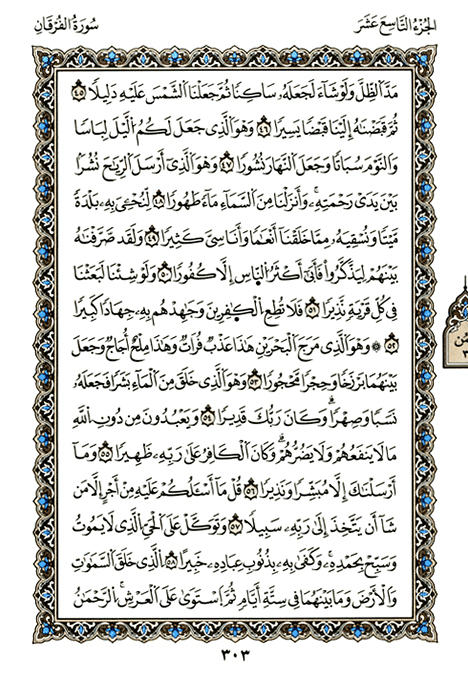 الجُزْءُ التَّاسِعَ عَشَرَ
سُورَةُ الفُرْقَانِ
مَدَّ ٱلظِّلَّ وَلَوْ شَآءَ لَجَعَلَهُۥ سَاكِنًا ثُمَّ جَعَلْنَا ٱلشَّمْسَ عَلَيْهِ دَلِيلًا ٤٥
ثُمَّ قَبَضْنَٰهُ إِلَيْنَا قَبْضًا يَسِيرًا ٤٦ وَهْوَ ٱلَّذِى جَعَلَ لَكُمُ ٱلَّيْلَ لِبَاسًا
وَٱلنَّوْمَ سُبَاتًا وَجَعَلَ ٱلنَّهَارَ نُشُورًا ٤٧ وَهْوَ ٱلَّذِى أَرْسَلَ ٱلرِّيَٰحَ نُشُرًا
بَيْنَ يَدَىْ رَحْمَتِهِۦ وَأَنزَلْنَا مِنَ ٱلسَّمَآءِ مَآءً طَهُورًا ٤٨ لِّنُحْـِۧىَ بِهِۦ بَلْدَةً
مَّيْتًا وَنُسْقِيَهُۥ مِمَّا خَلَقْنَآ أَنْعَٰمًا وَأَنَاسِىَّ كَثِيرًا ٤٩ وَلَقَد صَّرَّفْنَٰهُ
بَيْنَهُمْ لِيَذَّكَّرُوا۟ فَأَبَىٰٓ أَكْثَرُ ٱلنَّاسِ إِلَّا كُفُورًا ٥٠ وَلَوْ شِئْنَا لَبَعَثْنَا
فِى كُلِّ قَرْيَةٍ نَّذِيرًا ٥١ فَلَا تُطِعِ ٱلْكَٰفِرِينَ وَجَٰهِدْهُم بِهِۦ جِهَادًا كَبِيرًا
٥٢ ۞ وَهْوَ ٱلَّذِى مَرَجَ ٱلْبَحْرَيْنِ هَٰذَا عَذْبٌ فُرَاتٌ وَهَٰذَا مِلْحٌ أُجَاجٌ وَجَعَلَ
بَيْنَهُمَا بَرْزَخًا وَحِجْرًا مَّحْجُورًا ٥٣ وَهْوَ ٱلَّذِى خَلَقَ مِنَ ٱلْمَآءِ بَشَرًا فَجَعَلَهُۥ
نَسَبًا وَصِهْرًا ۗ وَكَانَ رَبُّكَ قَدِيرًا ٥٤ وَيَعْبُدُونَ مِن دُونِ ٱللَّهِ
مَا لَا يَنفَعُهُمْ وَلَا يَضُرُّهُمْ ۗ وَكَانَ ٱلْكَافِرُ عَلَىٰ رَبِّهِۦ ظَهِيرًا ٥٥ وَمَآ
أَرْسَلْنَٰكَ إِلَّا مُبَشِّرًا وَنَذِيرًا ٥٦ قُلْ مَآ أَسْـَٔلُكُمْ عَلَيْهِ مِنْ أَجْرٍ إِلَّا مَن
شَآ أَن يَتَّخِذَ إِلَىٰ رَبِّهِۦ سَبِيلًا ٥٧ وَتَوَكَّلْ عَلَى ٱلْحَىِّ ٱلَّذِى لَا يَمُوتُ
وَسَبِّحْ بِحَمْدِهِۦ ۚ وَكَفَىٰ بِهِۦ بِذُنُوبِ عِبَادِهِۦ خَبِيرًا ٥٨ ٱلَّذِى خَلَقَ ٱلسَّمَٰوَٰتِ
وَٱلْأَرْضَ وَمَا بَيْنَهُمَا فِى سِتَّةِ أَيَّامٍ ثُمَّ ٱسْتَوَىٰ عَلَى ٱلْعَرْشِ ۚ ٱلرَّحْمَٰنُ
٣٠٣